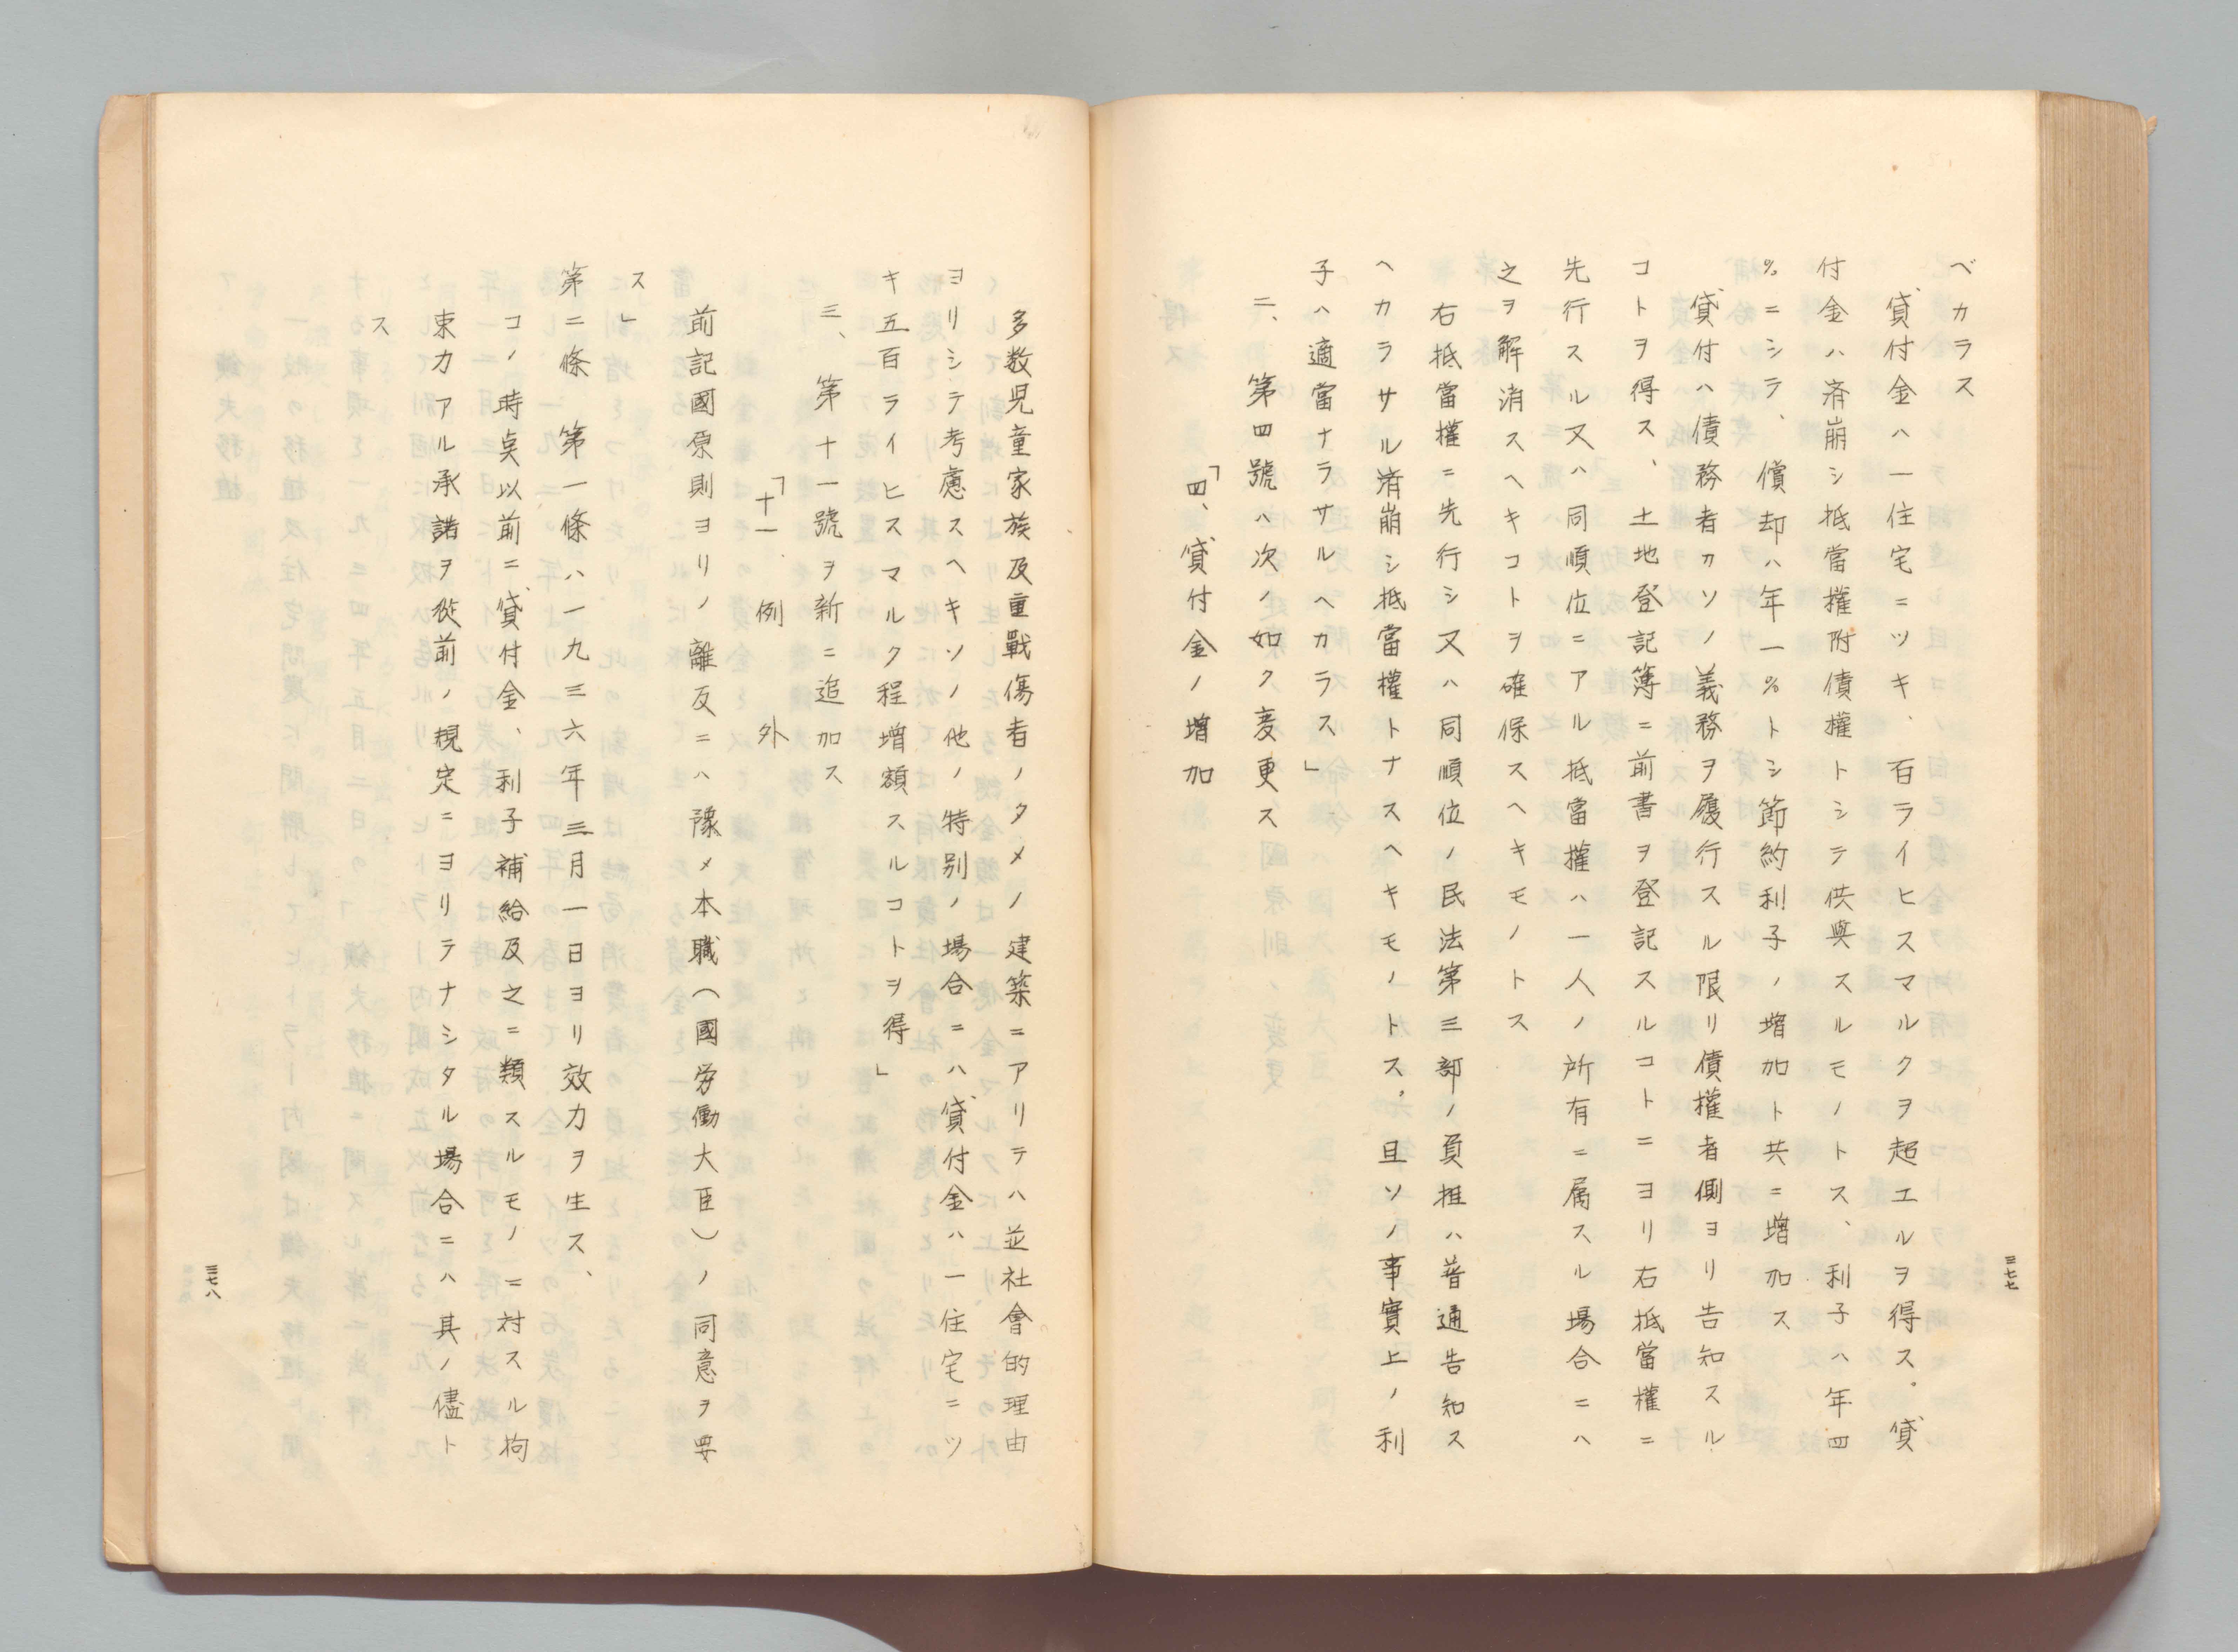 ベカラス
貸付金ハ一住宅ニツキ、百ライヒスマルクヲ超エルヲ得ス。貸
付金ハ済崩シ抵當權附債權トシテ供與スルモノトス、利子ハ年四
%ニシテ、償却ハ年一%トシ節約利子ノ増加ト共ニ増加ス
貸付ハ債務者カソノ義務ヲ履行スル限リ債權者側ヨリ告知スル
コトヲ得ス、土地登記簿ニ前書ヲ登記スルコトニヨリ右抵當權ニ
先行スル又ハ同順位ニアル抵當權ハ一人ノ所有ニ属スル場合ニハ
之ヲ解消スヘキコトヲ確保スヘキモノトス
右抵當權ニ先行シ又ハ同順位ノ民法第三部ノ負担ハ普通告知ス
ヘカラサル済崩シ抵當權トナスヘキモノトス。且ソノ事實上ノ利
子ハ適當ナラサルヘカラス」
二、第四號ハ次ノ如ク変更ス
「四、貸付金ノ増加
三七七
多数児童家族及重戰傷者ノタメノ建築ニアリテハ並社會的理由
ヨリシテ考慮スヘキソノ他ノ特別ノ場合ニハ貸付金ハ一住宅ニツ
キ五百ライヒスマルク程増額スルコトヲ得」
三、第十一號ヲ新ニ追加ス
「十一、例外
前記國原則ヨリノ離反ニハ豫メ本職(國労働大臣)ノ同意ヲ要
ス」
第二條 第一條ハ一九三六年三月一日ヨリ效力ヲ生ス、
コノ時奌以前ニ貸付金、利子補給及之ニ類スルモノニ対スル拘
束力アル承諾ヲ從前ノ規定ニヨリテナシタル場合ニハ其ノ儘ト
ス
三七八